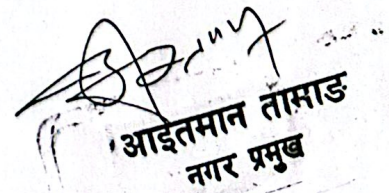 आइतमान तामाङ
नगर प्रमुख